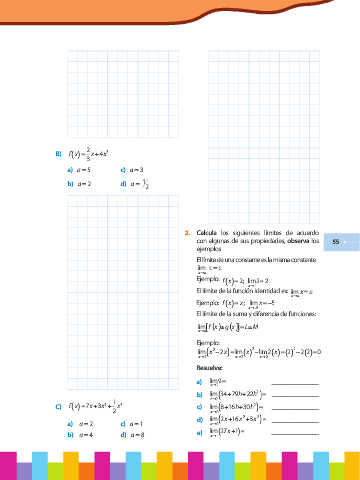 B) f(x) = 2/3 x + 4x²
a) a = 5 c) a = 3
b) a = 2 d) a = 1/2
C) f(x) = 7x + 3x² + 1/2 x³
a) a = 2 c) a = 1
b) a = 4 d) a = 8
2. Calcula los siguientes límites de acuerdo
con algunas de sus propiedades, observa los
ejemplos
El límite de una constante es la misma constante
lim c = c
Ejemplo: f(x) = 2; lim 2 = 2
El límite de la función identidad es: lim x = a
Ejemplo: f(x) = x; lim x = −5
El límite de la suma y diferencia de funciones:
lim [f(x) ± g(x)] = L ± M
Ejemplo:
lim (x² − 2x) = lim (x)² − lim 2(x) = (2)² − 2(2) = 0
Resuelve:
a) lim 9 =
b) lim (34 + 79h + 22h²) =
c) lim (8 + 16h + 30h²) =
d) lim (2x + 16x² + 8x³) =
e) lim (27x + 1) =
55